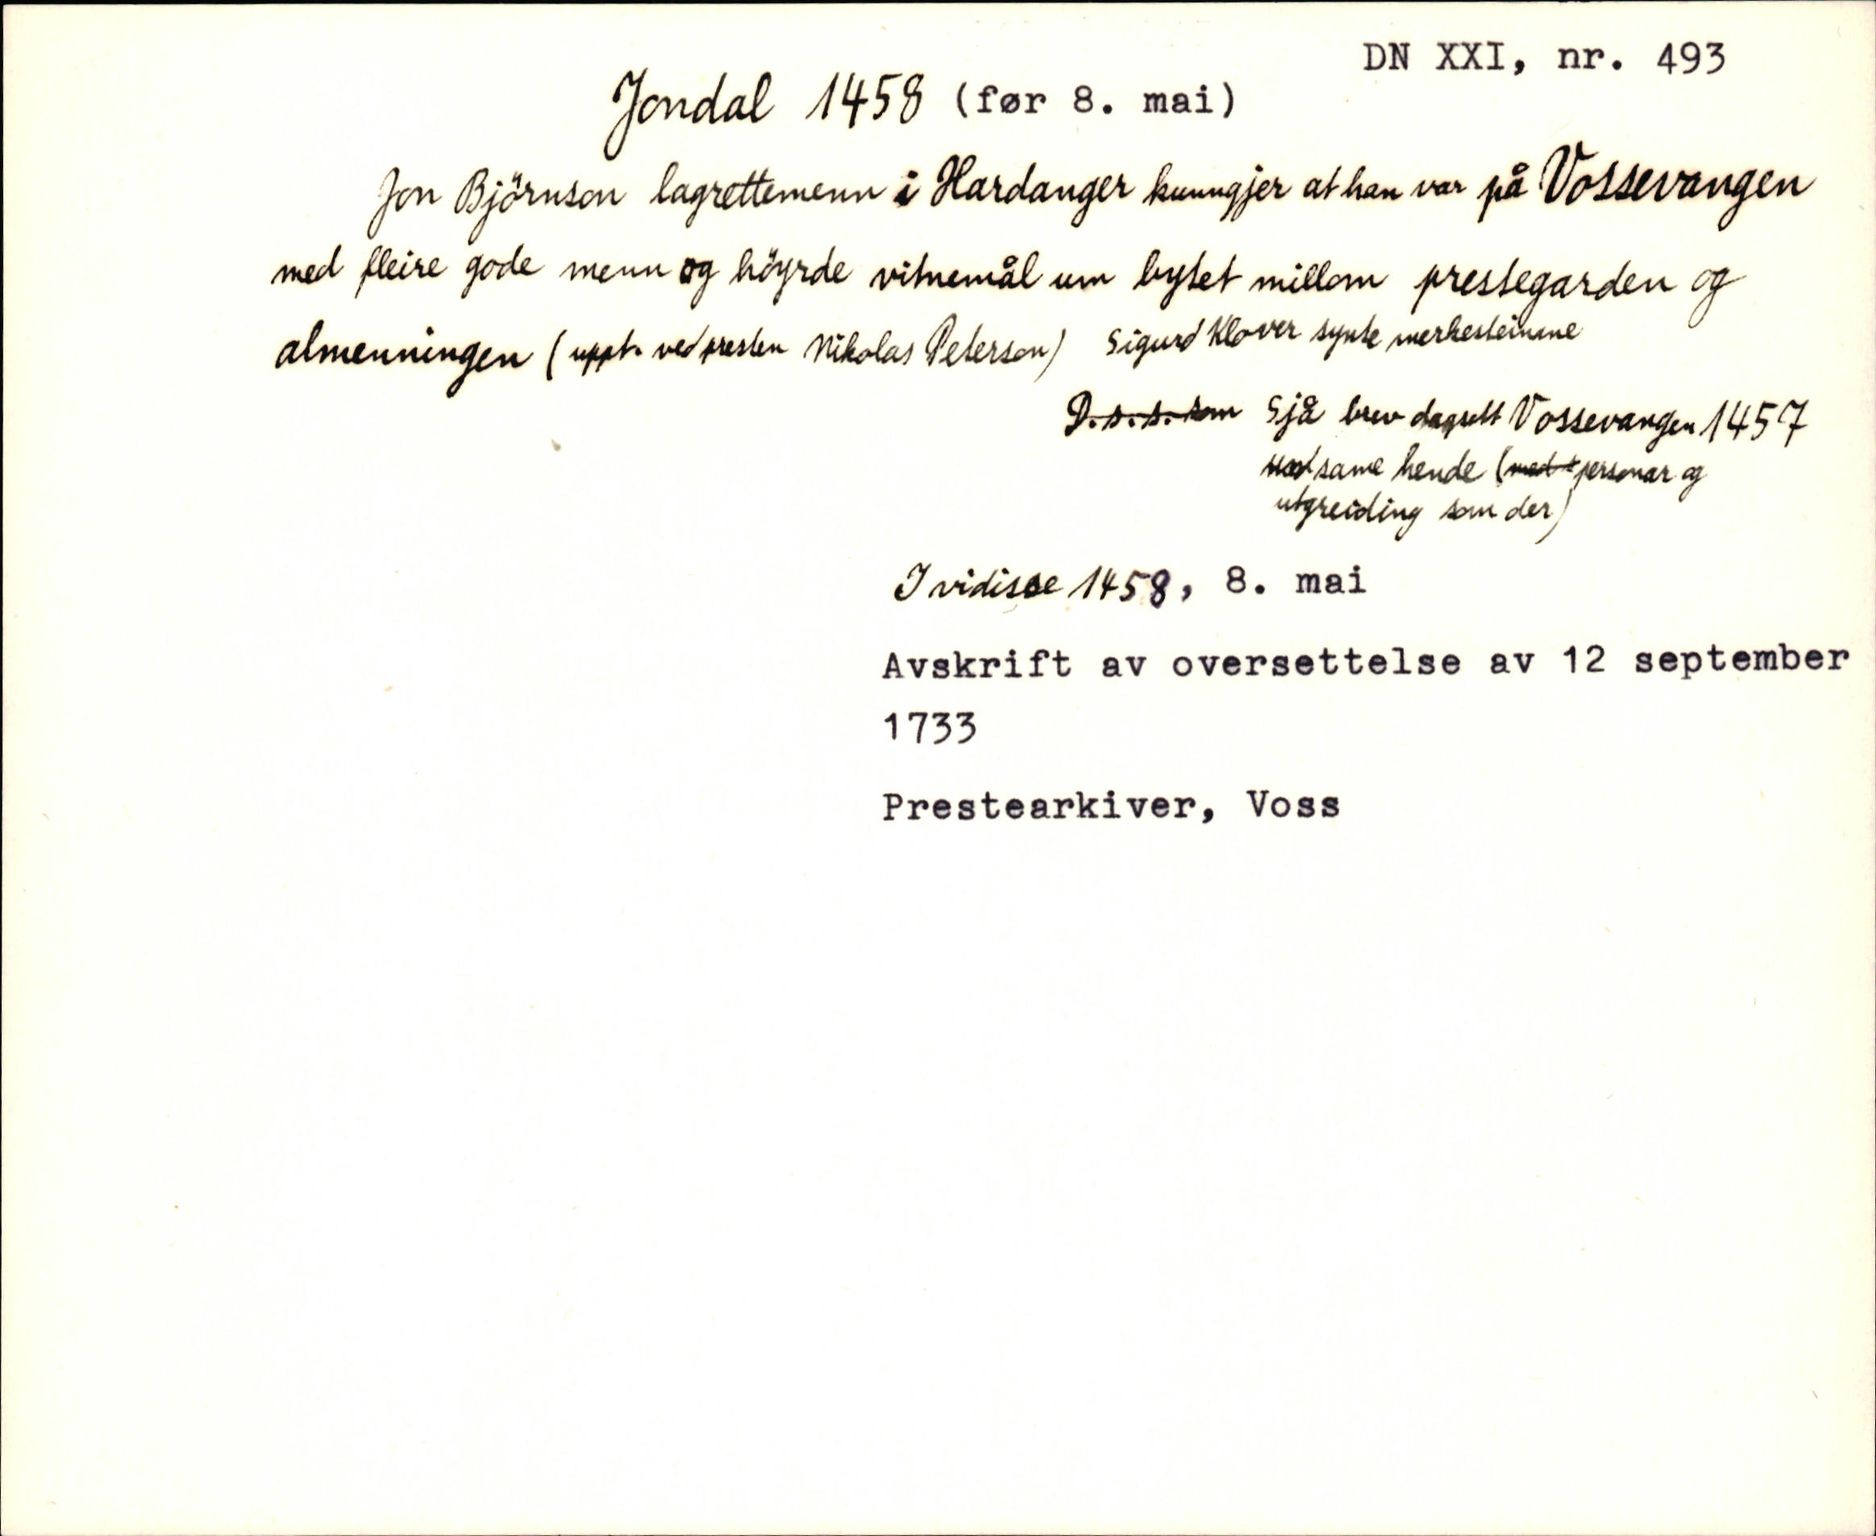 DN XXI, nr. 493
Jondal 1458 (før 8. mai)
Jon Björnson lagrettemenn i Hardanger kunngjer at han var på Vossevangen
med fleire gode menn og höyrde vitnemål um bytet millom prestegarden og
almenningen (uppt. ved presten Nikolas Peterson) Sigurd Klover synte merkesteinane
D.s.s. som Sjå brev dagsett Vossevangen 1457
same hende (med personar og
utgreiding som der)
I vidisse 1458, 8. mai
Avskrift av oversettelse av 12 september
1733
Prestearkiver, Voss